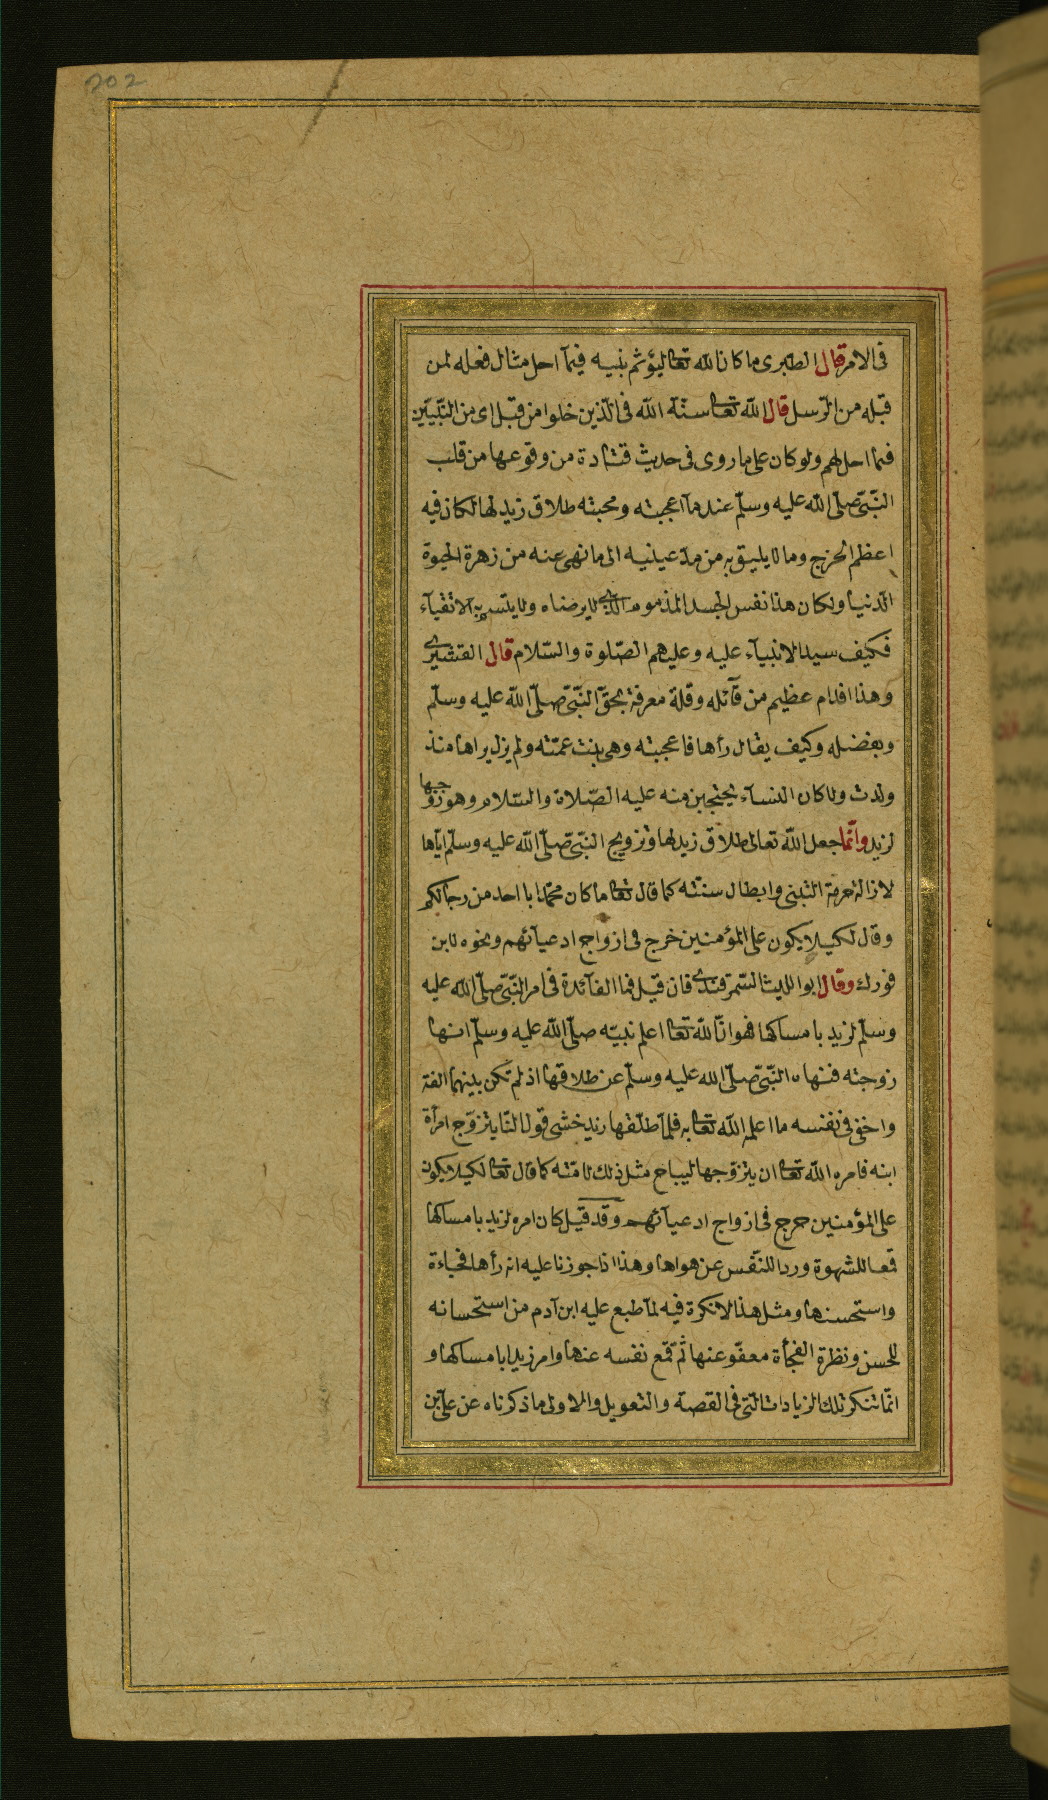 202
فى الامر قال الطبرى ما كان الله تعالى ليؤثم نبيه فيما احل مثال فعله لمن
قبله من الرسل قال الله تعالى سنة الله فى الذين خلوا من قبل اى من النبيين
فيما احل لهم ولو كان على ما روى فى حديث قتادة من وقوعها من قلب
النبى صلى الله عليه وسلم عندما اعجبته ومحبته طلاق زيد لها لكان فيه
اعظم الحرج وما لا يليق به من مد عينيه الى ما نهى عنه من زهرة الحيوة
الدنيا ولكان هذا نفس الحسد المذموم الذى لا يرضاه ولا يتسم به الاتقيآء
فكيف سيد الانبيآء عليه وعليهم الصلوة والسلام قال القشيرى
وهذا اقدام عظيم من قآئله وقلة معرفة بحق النبى صلى الله عليه وسلم
وبفضله وكيف يقال رأها فاعجبته وهى بنت عمته ولم يزل يراها منذ
ولدت ولا كان النسآء يحتجبن منه عليه الصلاة والسلام وهو زوجها
لزيد وانما جعل الله تعالى طلاق زيد لها وتزويج النبى صلى الله عليه وسلم اياها
لازالة حرمة التبنى وابطال سنته كما قال تعالى ما كان محمد ابا احد من رجالكم
وقال لكيلا يكون على المؤمنين حرج فى ازواج ادعيآئهم ونحوه لابن
فورك وقال ابو الليث السمرقندى فان قيل فما الفآئدة فى امر النبى صلى الله عليه
وسلم لزيد بامساكها فهو ان الله تعالى اعلم نبيه صلى الله عليه وسلم انها
زوجته فنهاه النبى صلى الله عليه وسلم عن طلاقها اذ لم تكن بينهما الفة
واخفى فى نفسه ما اعلمه الله تعالى به فلما طلقها زيد خشى قول الناس يتزوج امرأة
ابنه فامره الله تعالى ان يتزوجها ليباح مثل ذلك لامته كما قال تعالى لكيلا يكون
على المؤمنين حرج فى ازواج ادعيآئهم وقد قيل كان امره لزيد بامساكها
قمعا للشهوة وردا للنفس عن هواها وهذا اذا جوزنا عليه انه رأها فجاءة
واستحسنها ومثل هذا لا نكرة فيه لما طبع عليه ابن آدم من استحسانه
للحسن ونظرة الفجأة معفو عنها ثم قمع نفسه عنها وامر زيدا بامساكها و
انما تنكر تلك الزيادات التى فى القصة والتعويل والاولى ما ذكرناه عن على بن